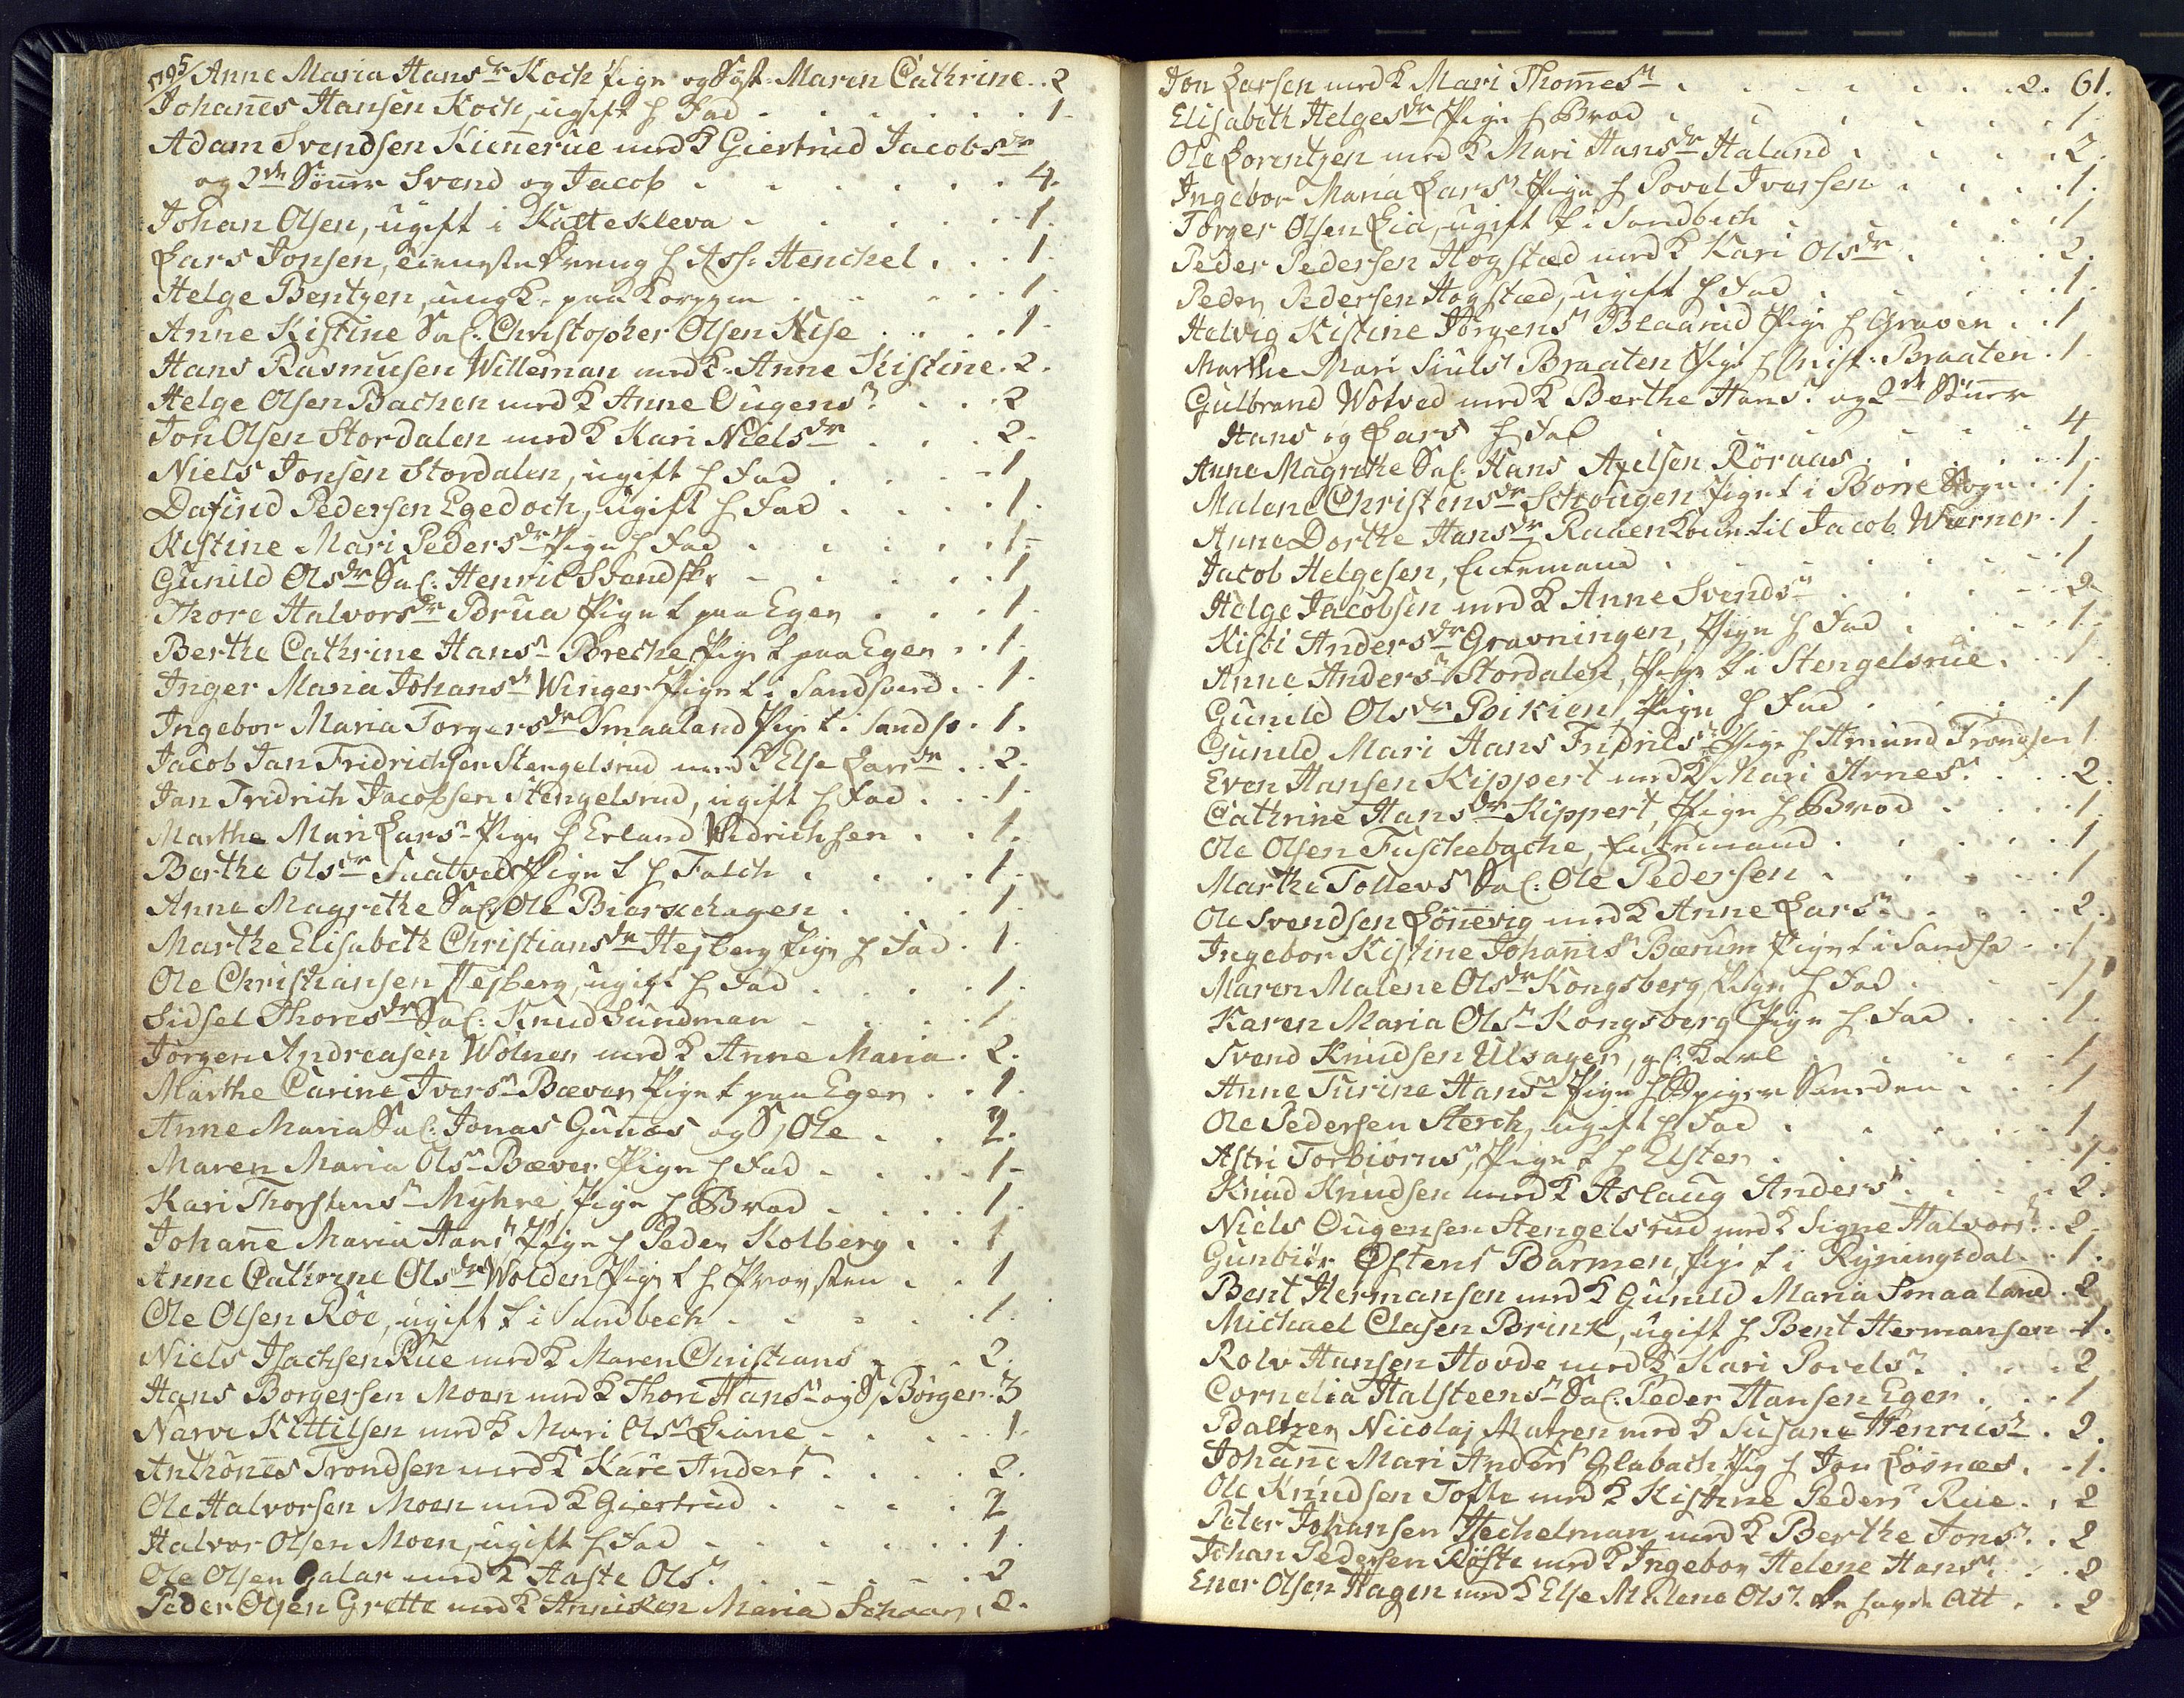 1795/ Anne Maria Hansdr Koch Pige og Syst. Maren Cathrine . . 2
Johanes Hansen Koch, ugift h Fad . . . 1.
Adam Svendsen Kienerue med K Giertrud Jacobsdr
og 2de Sönner Svend og Jacob . . . 4.
Johan Olsen, ugift i Katteskleva . . . 1.
Lars Jonsen, tieneste Dreng h Ass: Henchel . . . 1.
Helge Bentzen, ung K. paa Korppen . . . 1.
Anne Kistine Sal: Christopher Olsen Nise . . . 1.
Hans Rasmusen Willeman med K. Anne Kistine . 2.
Helge Olsen Bachen med K Anne Ougensr . . . 2
Jon Olsen Stordalen med K Kari Nielsdr . . . 2.
Niels Jonsen Stordalen, ugift h Fad . . . 1
Dafind Pedersen Egedoch, ugift h Fad . . . 1.
Kistine Mari Pedersdr Pige h Fad . . . 1.
Gunild Olsdr Sal: Henric Svendsk: . . . 1
Thore Halvorsdr Brua Pige t paa Eger . . . 1.
Berthe Cathrine Hansr Breche, Pige t paa Eger . . 1.
Inger Maria Johansr Winger Pige t i Sandsverd . . 1.
Ingebor Maria Torgersdr Smaaland Pige t i Sandsv . 1.
Jacob Jan Fridrichsen Stengelsrud med K Else Larsdr . . 2.
Jan Fridrich Jacobsen Stengelsrud, ugift h Fad . . . 1.
Marthe Mari Larsr Pige h Erland Widrichsen . . 1.
Berthe Olsdr Saatvedt Pige t h Falch . . . 1.
Anne Magrethe Sal: Ole Biørschagen . . . 1.
Marthe Elisabeth Christiansdr Hesberg Pige h Fad . 1.
Ole Christiansen Hesberg, ugift h Fad . . . 1.
Sidsel Thoresdr Sal: Knud Sundman . . . 1
Jørgen Andreasen Wolner med K Anne Maria . 2.
Marthe Carine Iversr Bæver, Pige t paa Eger . . 1.
Anne Maria Sal: Jonas Gunæs og S/ Ole . . 2.
Maren Maria Olsr Bæver Pige h Fad . . . 1.
Kari Thorstensr Myhre, Pige h Brod . . . 1.
Johane Maria Hansr Pige h Peder Kolberg . . 1
Anne Cathrine Olsdr Wolden Pige t h Provsten . . 1
Ole Olsen Röe, ugift t i Sandbech . . . 1.
Niels Isachsen Rue med K Maren Christians . . 2.
Hans Borgersen Moen med K Thore Hansr og S/ Börger . 3
Narve Kittilsen med K Mari Olsr Liane . . . 1.
Anthönes Trondsen med K Kari Andersr . . . 2.
Ole Halvorsen Moen med K Giertrud . . . 2
Halvor Olsen Moen, ugift h Fad . . . 1.
Ole Olsen Galar med K Aaste Olsr . . . 2
Peder Olsen Grette med K Anniken Maria Schaar . 2.
Jon Larsen med K Mari Thomesr . . . 2. 61.
Elisabeth Helgesdr Pige h Brod . . . 1
Ole Lorentzen med K Mari Hansdr Haland . . . 2.
Ingebor Maria Larsr Pige h Povel Iversen . . . 1.
Torger Olsen Lia, ugift t i Sandbech . . . 1
Peder Pedersen Hogstæd med K Kari Olsdr . . . 2.
Peder Pedersen Hogstæd, ugift h Fad . . . 1.
Helvig Kistine Jørgensr Blaarud Pige h Graven . . 1
Marthe Mari Siulsr Braaten Pige h Christ: Braaten . 1.
Gulbrand Wotved med K Berthe Hansr og 2de Sönner
Hans og Lars h Fad . . . 4
Anne Magrethe Sal: Hans Axelsen Röraas . . . 1.
Malene Christensdr Schougen Pige t i Borre Sogn . . 1.
Anne Dorthe Hansdr Raden Kone til Jacob Wærner . 1.
Jacob Helgesen, Enkemand . . . 1
Helge Jacobsen med K Anne Svendsr . . . 2.
Kisti Andersdr Gravningen, Pige h Fad . . . 1.
Anne Andersr Stordalen, Pige t i Stengelsrue . . 1.
Gunild Olsdr Poikien, Pige h Fad . . . 1
Gunild Mari Hans Fridrichsr Pige h Amund Trondsen 1
Even Hansen Kippert med K Mari Arnesr . . . 2.
Cathrine Hansdr Kippert, Pige h Brod . . . 1.
Ole Olsen Fuschebache, Enkemand . . . 1
Marthe Tollevsr Sal: Ole Pedersen . . . 1
Ole Svendsen Lönevig med K Anne Larsr . . . 2.
Ingebor Kistine Johanisr Bærum Pige t i Sandsv . . 1
Maren Malene Olsdr Kongsberg Pige h Fad . . . 1
Karen Maria Olsr Kongsberg Pige h Fad . . . 1.
Svend Knudsen Ulsager, gl: Karl . . . 1
Anne Turine Hansr Pige h Birger Sverden . . . 1
Ole Pedersen Sterch, ugift h Fad . . . 1
Astri Torbiörnsr, Pige t h Elster . . . 1.
Knud Knudsen med K Aslaug Andersr . . . 2.
Niels Ougensen Stengelsrud med K Signe Halvorsr . 2.
Gunbiør Østens Barmen, Pige t i Ryningsdal . . 1.
Bent Hermansen med K Gunild Maria Smaaland . 2
Michael Clasen Brink, ugift h Bent Hermansen . 1.
Rolv Hansen Hovde med K Kari Povelsr . . . 2
Cornelia Halsteensr Sal: Peder Hansen Eger . . . 1
Baltzer Nicolaj Matzen med K Susane Henricsr . 2.
Johane Mari Andersr Glabach Pig h Jon Losnæs . . 1.
Ole Knudsen Tofte med K Kistine Pedersr Rue . . 2
Peter Johansen Hechelman med K Berthe Jonsr . . 2
Johan Pedersen Röste med K Ingebor Helene Hansr . . 2
Ener Olsen Hagen med K Else Malene Olsr de havde Att . . 2